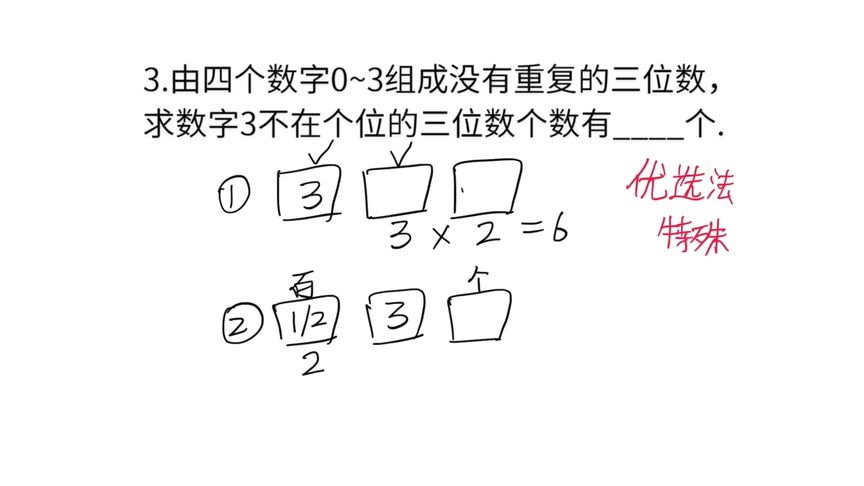 3.由四个数字0~3组成没有重复的三位数，
求数字3不在个位的三位数个数有____个.
① 3
3 × 2 = 6
优选法
特殊
百 个
② 1/2 3
2